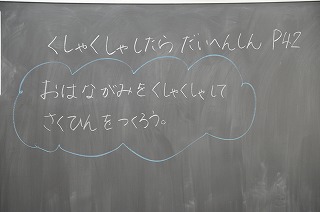 くしゃくしゃしたら だいへんしん P42
おはながみをくしゃくしゃして
さくひんをつくろう。